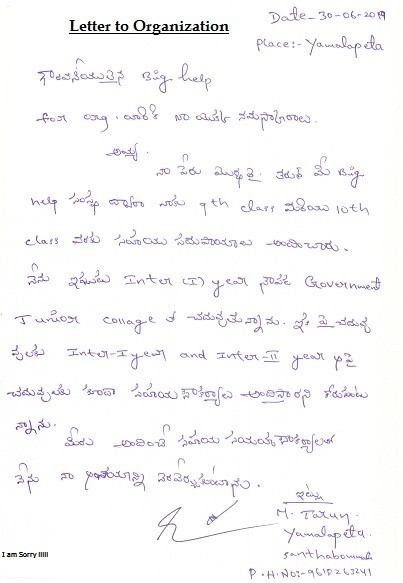 Letter to Organization
Date - 30-06-2019
Place:- Yamalapeta
గౌరవనీయులైన Big help
for org. వారికి నా యొక్క నమస్కారాలు.
అయ్యా.
నా పేరు తరుణ్ మీ Big
help సంస్థ ద్వారా నాకు 9th class మరియు 10th
class వరకు సహాయ సదుపాయాలు అందించారు.
నేను ఇప్పుడు Inter (I) year Government
Junior collage లో చదువుతున్నాను. పై చదువు
Inter-I year and Inter-II year పై
చదువులకు కూడా సహాయ అందిస్తారని కోరుకుంటు
న్నాను.
మీరు అందించే సహాయ
నేను నా
ఇట్లు
M. Tarun.
Yamalapeta.
Santhabommali
P.H.No:-9610263241
I am Sorry lllll